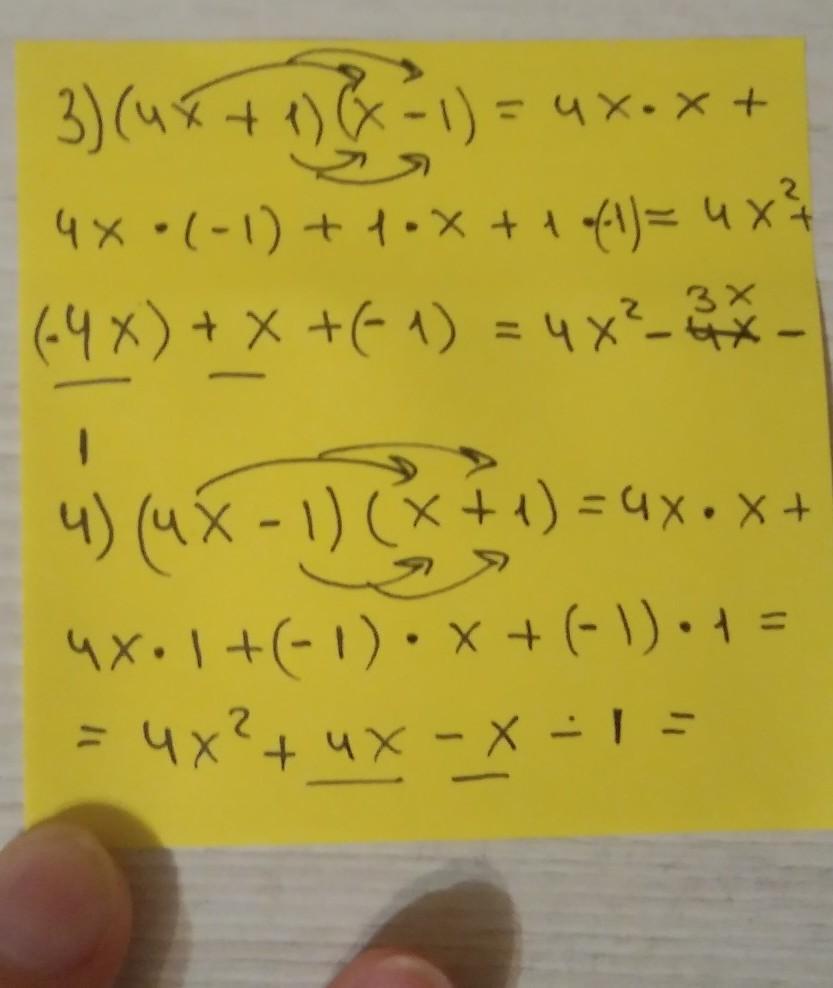 3) (4x + 1)(x - 1) = 4x · x +
4x · (-1) + 1 · x + 1 · (-1) = 4x² +
(-4x) + x + (-1) = 4x² - 3x -
1
4) (4x - 1)(x + 1) = 4x · x +
4x · 1 + (-1) · x + (-1) · 1 =
= 4x² + 4x - x - 1 =